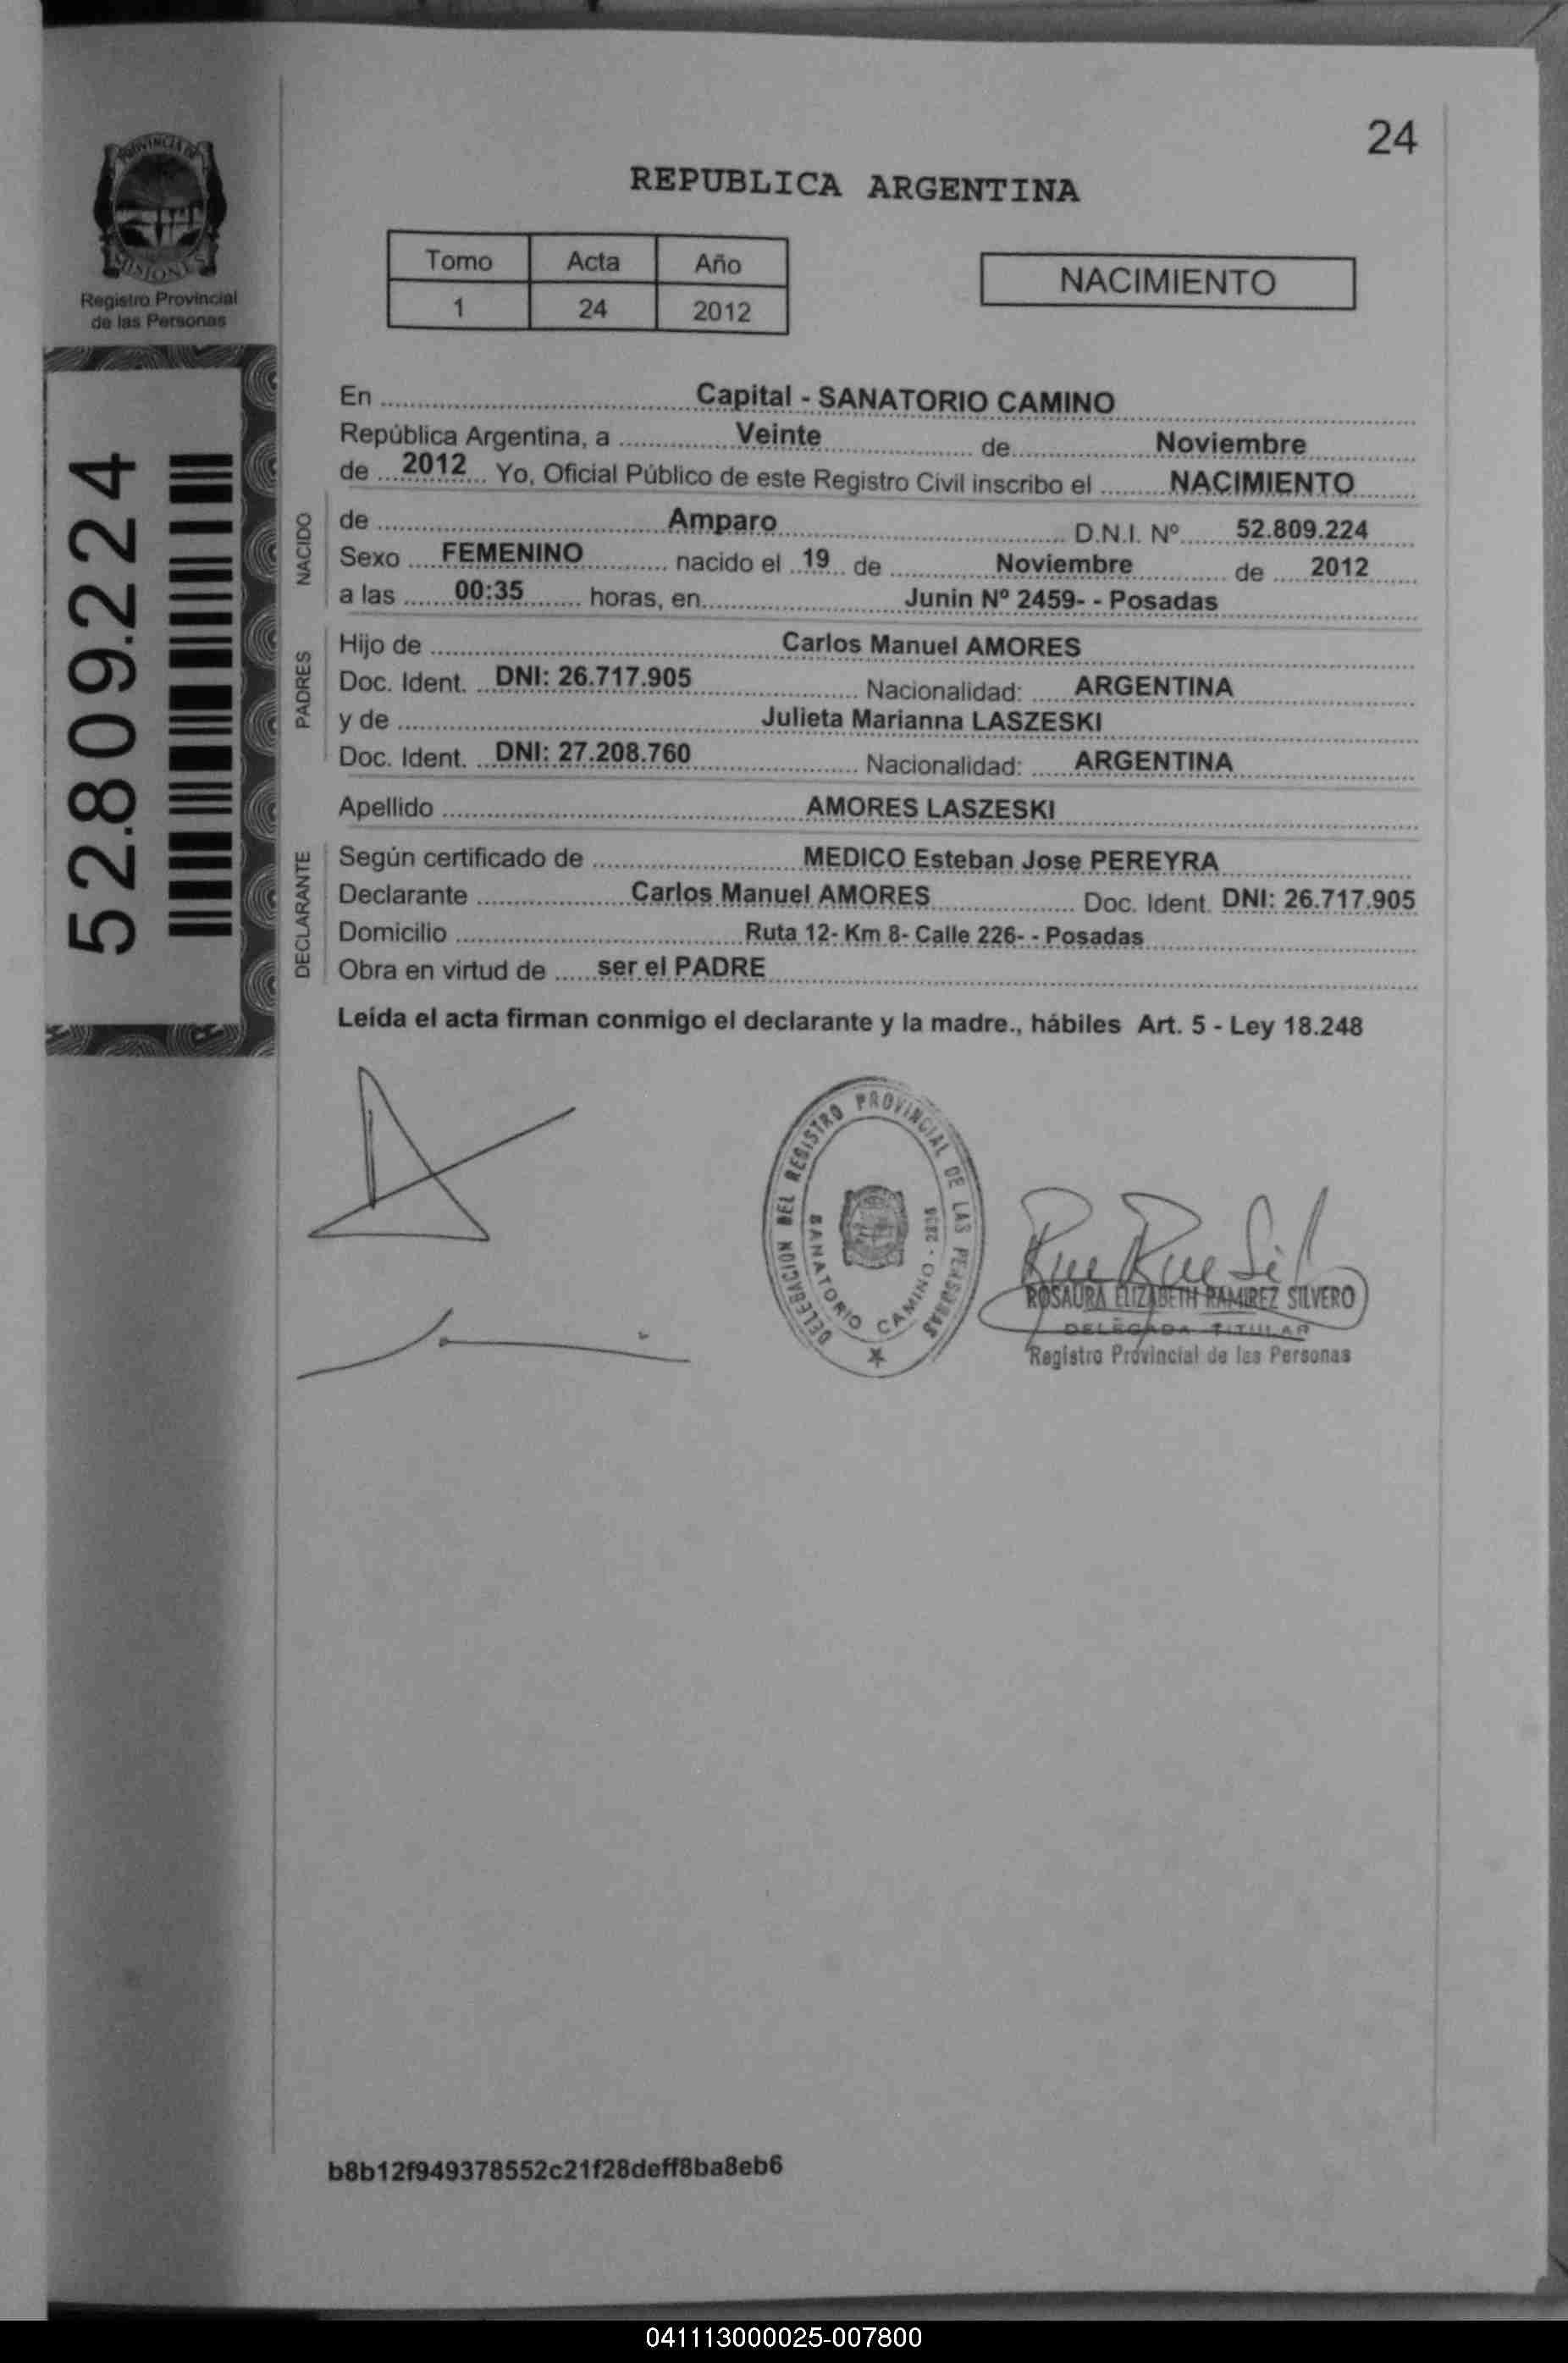 24
PROVINCIA DE
MISIONES
Registro Provincial
de las Personas
52.809.224
REPUBLICA ARGENTINA
Tomo Acta Año
1 24 2012
NACIMIENTO
En Capital - SANATORIO CAMINO
República Argentina, a Veinte de Noviembre
de 2012 Yo, Oficial Público de este Registro Civil inscribo el NACIMIENTO
NACIDO
de Amparo D.N.I. Nº 52.809.224
Sexo FEMENINO nacido el 19 de Noviembre de 2012
a las 00:35 horas, en Junin Nº 2459- - Posadas
PADRES
Hijo de Carlos Manuel AMORES
Doc. Ident. DNI: 26.717.905 Nacionalidad: ARGENTINA
y de Julieta Marianna LASZESKI
Doc. Ident. DNI: 27.208.760 Nacionalidad: ARGENTINA
Apellido AMORES LASZESKI
DECLARANTE
Según certificado de MEDICO Esteban Jose PEREYRA
Declarante Carlos Manuel AMORES Doc. Ident. DNI: 26.717.905
Domicilio Ruta 12- Km 8- Calle 226- - Posadas
Obra en virtud de ser el PADRE
Leída el acta firman conmigo el declarante y la madre., hábiles Art. 5 - Ley 18.248
DELEGACION DEL REGISTRO PROVINCIAL DE LAS PERSONAS
SANATORIO CAMINO - 2839
ROSAURA ELIZABETH RAMIREZ SILVERO
DELEGADA TITULAR
Registro Provincial de las Personas
b8b12f949378552c21f28deff8ba8eb6
041113000025-007800